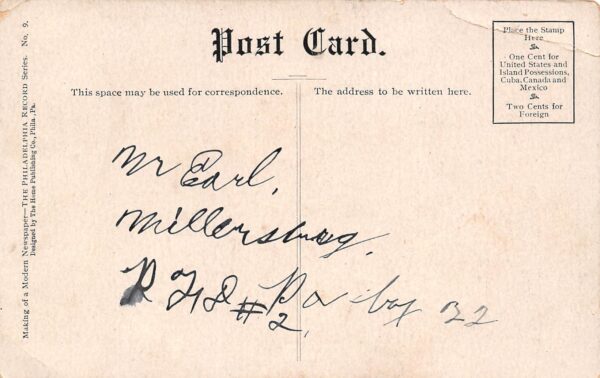 Post Card.
Place the Stamp
Here
One Cent for
United States and
Island Possessions,
Cuba, Canada and
Mexico
Two Cents for
Foreign
This space may be used for correspondence.
The address to be written here.
Mr Earl,
Millersburg,
R F D #2, Pa box 32
Making of a Modern Newspaper—THE PHILADELPHIA RECORD Series. No. 9.
Designed by The Home Publishing Co., Phila., Pa.